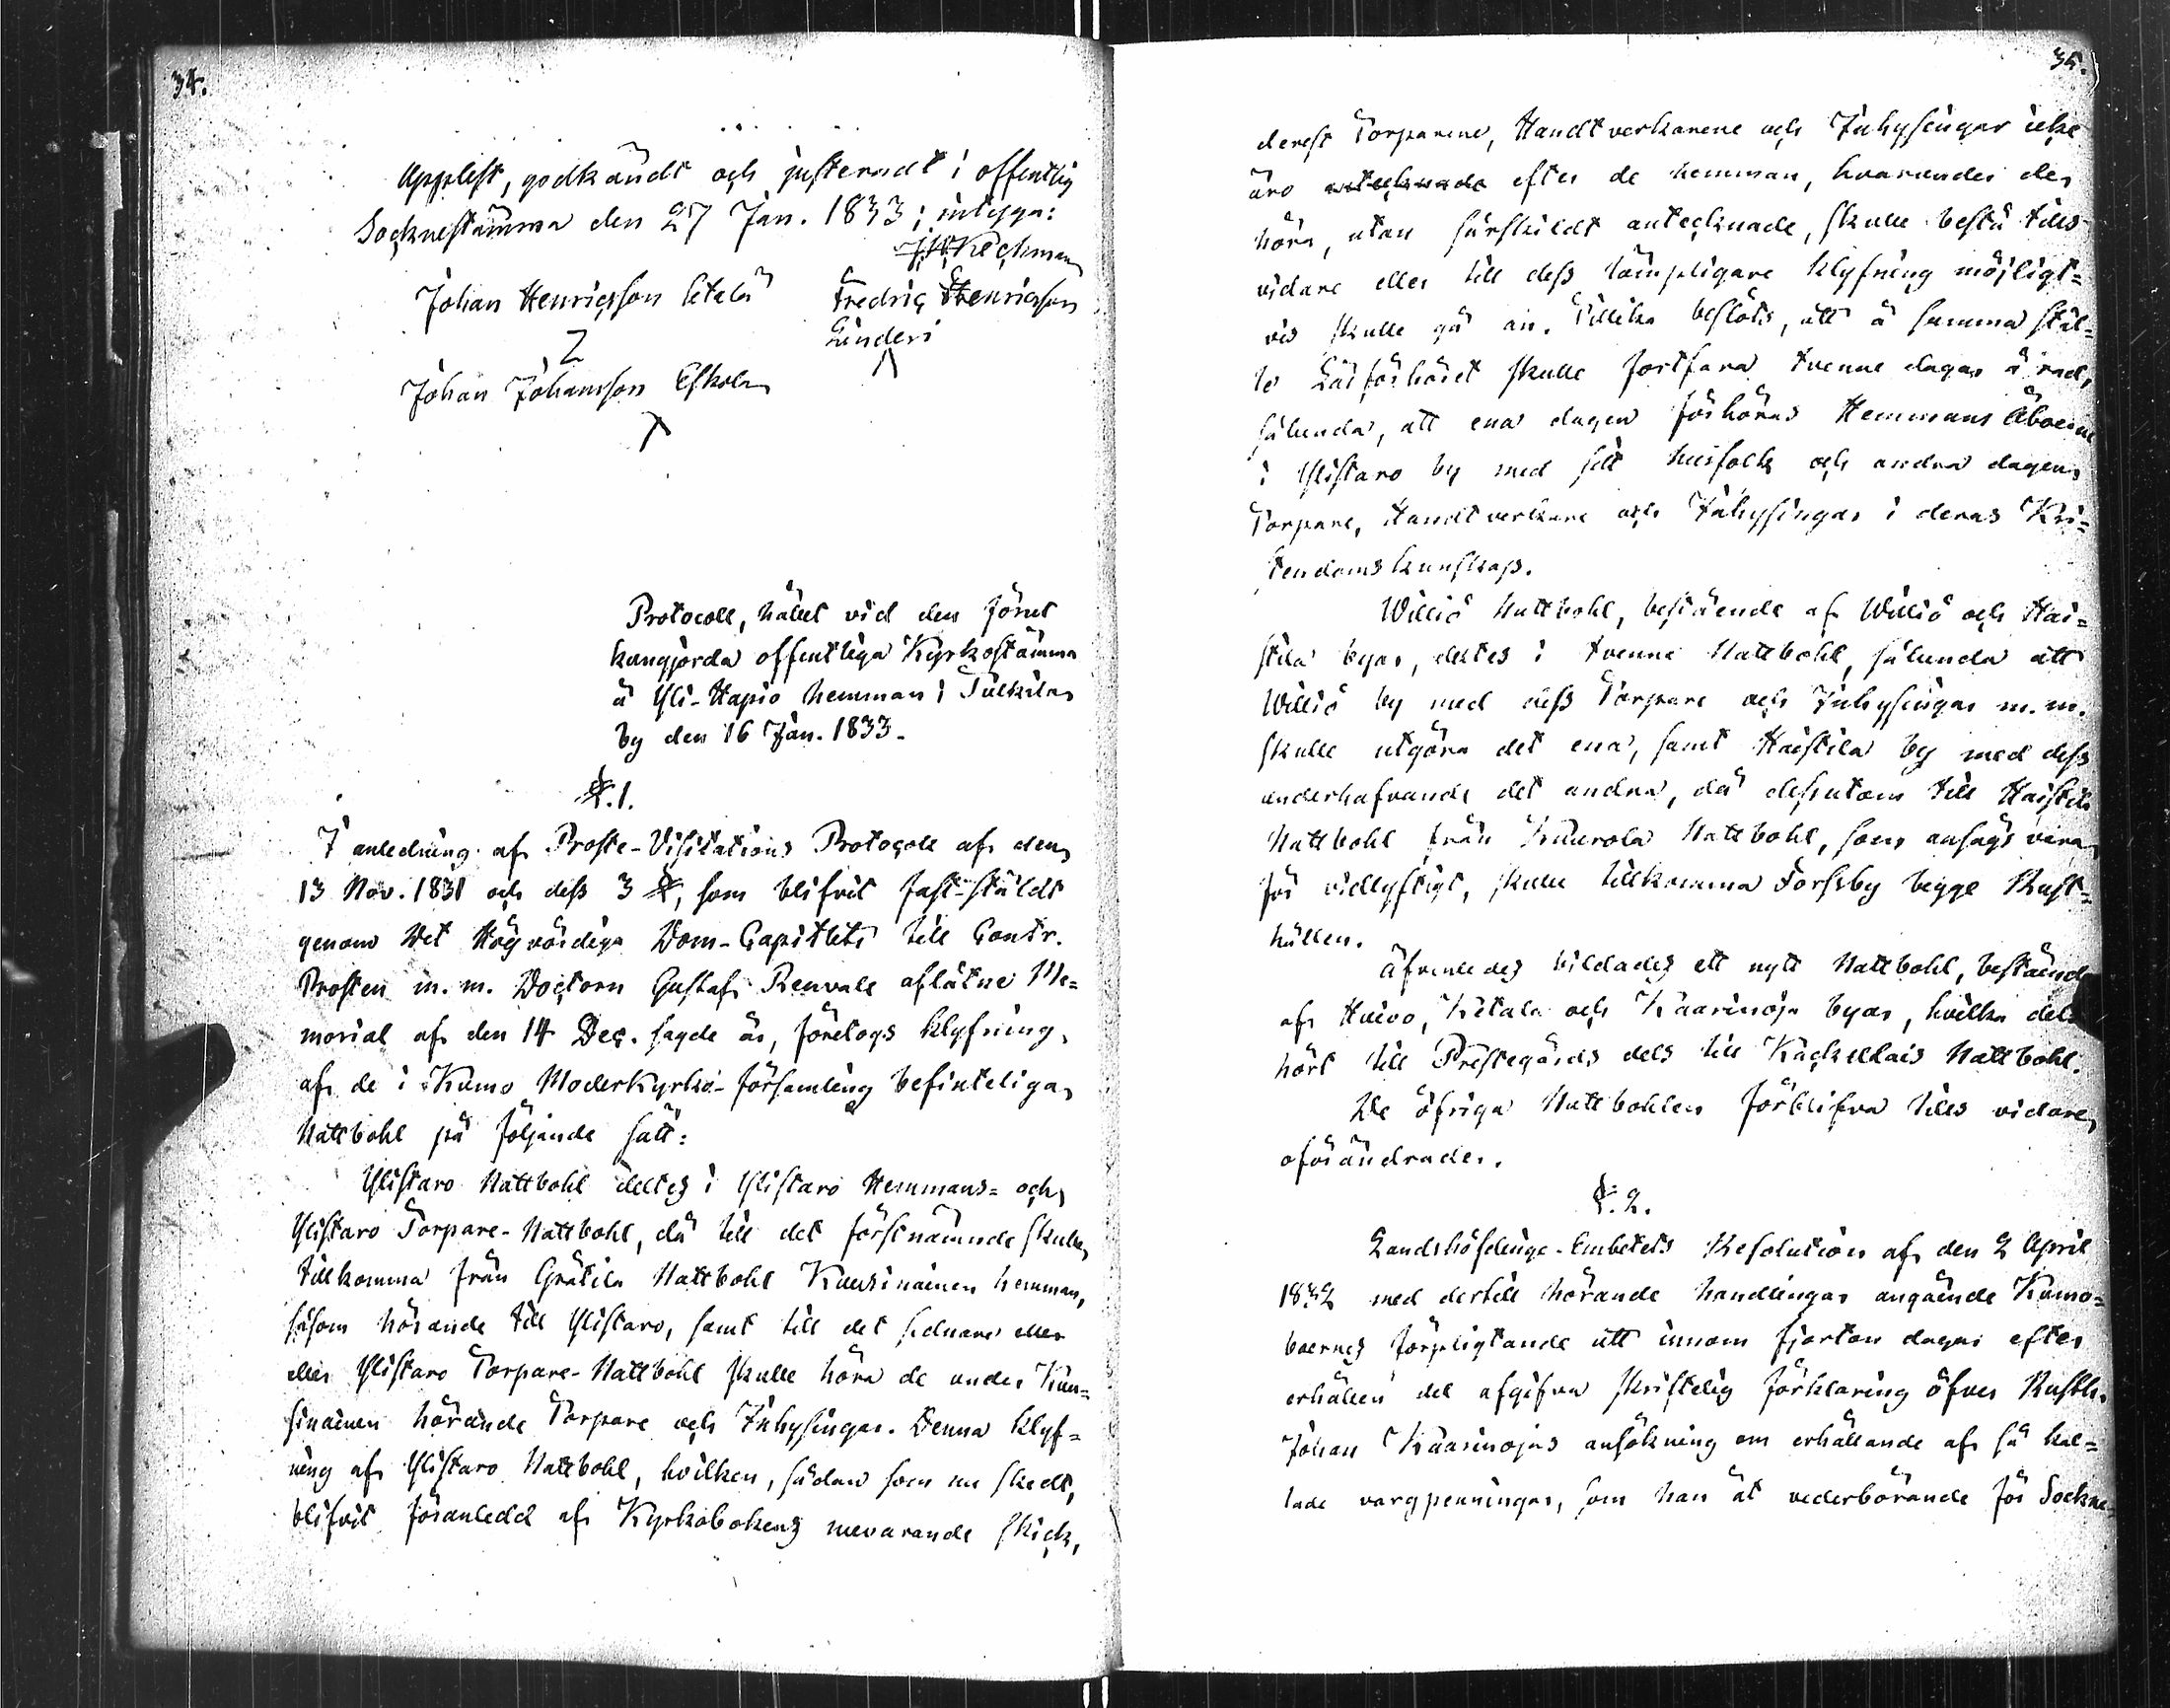 34.
Upplest, godkändt och justeradt i offentlig
Socknestämma den 27 Jan. 1833; intyga:
Johan Henricsson Fredric Henricsson
Linderi
Johan Johansson Eskola
Protocoll, hållet vid den förut
kungjorda offentliga Kyrkostämma
å Yli-Hapio hemman i Tulkila
by den 16 Jan. 1833.
§.1.
I anledning af Proste-Visitations Protocoll af den
13 Nov. 1831 och dess 3 §, som blifvit fast-stäldt
genom Det Högvördiga Dom-Capitlets till Contr.
Prosten m. m. Doctorn Gustaf Renvall aflåtne Me=
morial af den 14 Dec. sagde år, företogs klyfning,
af de i Kumo Moderkyrko-församling befinteliga
Nattbohl på följande sätt:
Ylistaro Nattbohl deltes i Ylistaro Hemmans= och
Ylistaro Torpare-Nattbohl, då till det förstnämnde skulle
tillkomma från Gråtila Nattbohl Kuusinainen hemman,
såsom hörande till Ylistaro, samt till det sednare eller
eller Ylistaro Torpare-Nattbohl skulle höra de under Kuu=
sinainen hörande Torpare och Inhysingar. Denna klyf=
ning af Ylistaro Nattbohl, hvilken, sådan som nu skedt,
blifvit föranledd af Kyrkobokens nuvarande skick,
35.
derest Torparene, Handtverkarene och Inhysingar icke
äro antecknade efter de hemman, hvarunder de
höra, utan särskildt antecknade, skulle bestå tills
vidare eller till dess lämpligare klyfning möjligt=
vis skulle gå an. Tillika beslöts, att å samma stäl=
le Läsförhöret skulle fortfara tvenne dagar å rad,
sålunda, att ena dagen förhöras Hemmans Åboerne
i Ylistaro by med sitt husfolk och andra dagen
Torpare, Handtverkare och Inhysingar i deras Kri=
stendomskunskap.
Williö Nattbohl, bestående af Williö och Hai=
stila byar, deltes i tvenne Nattbohl, sålunda att
Williö by med dess Torpare och Inhysingar m. m.
skulle utgöra det ena, samt Haistila by med dess
underhafvande det andra, då dessutom till Haistila
Nattbohl från Kaurola Nattbohl, som ansågs vara
för vidlyftigt, skulle tillkomma Forsby begge Rust=
hållen.
Äfvenledes bildades ett nytt Nattbohl, bestående
af Huivo, Kitala och Kaarinoja byar, hvilka dels
hört till Prestegårds dels till Käckellais Nattbohl.
De öfriga Nattbohlen förblifva tills vidare
oförändrade.
§.2.
Landshöfdinge-Embetets Resolution af den 2 April
1832 med dertill hörande handlingar angående Kumo=
boernes förpligtande att innom fjorton dagar efter
erhållen del afgifva skriftelig förklaring öfver Rusth.
Johan Kaarinojas ansökning om erhållande af så kal=
lade vargpenningar, som han åt vederbörande för Sockne=